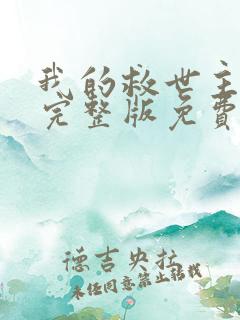 我的救世主
完整版免費
德吉央拉
未经同意禁止转载